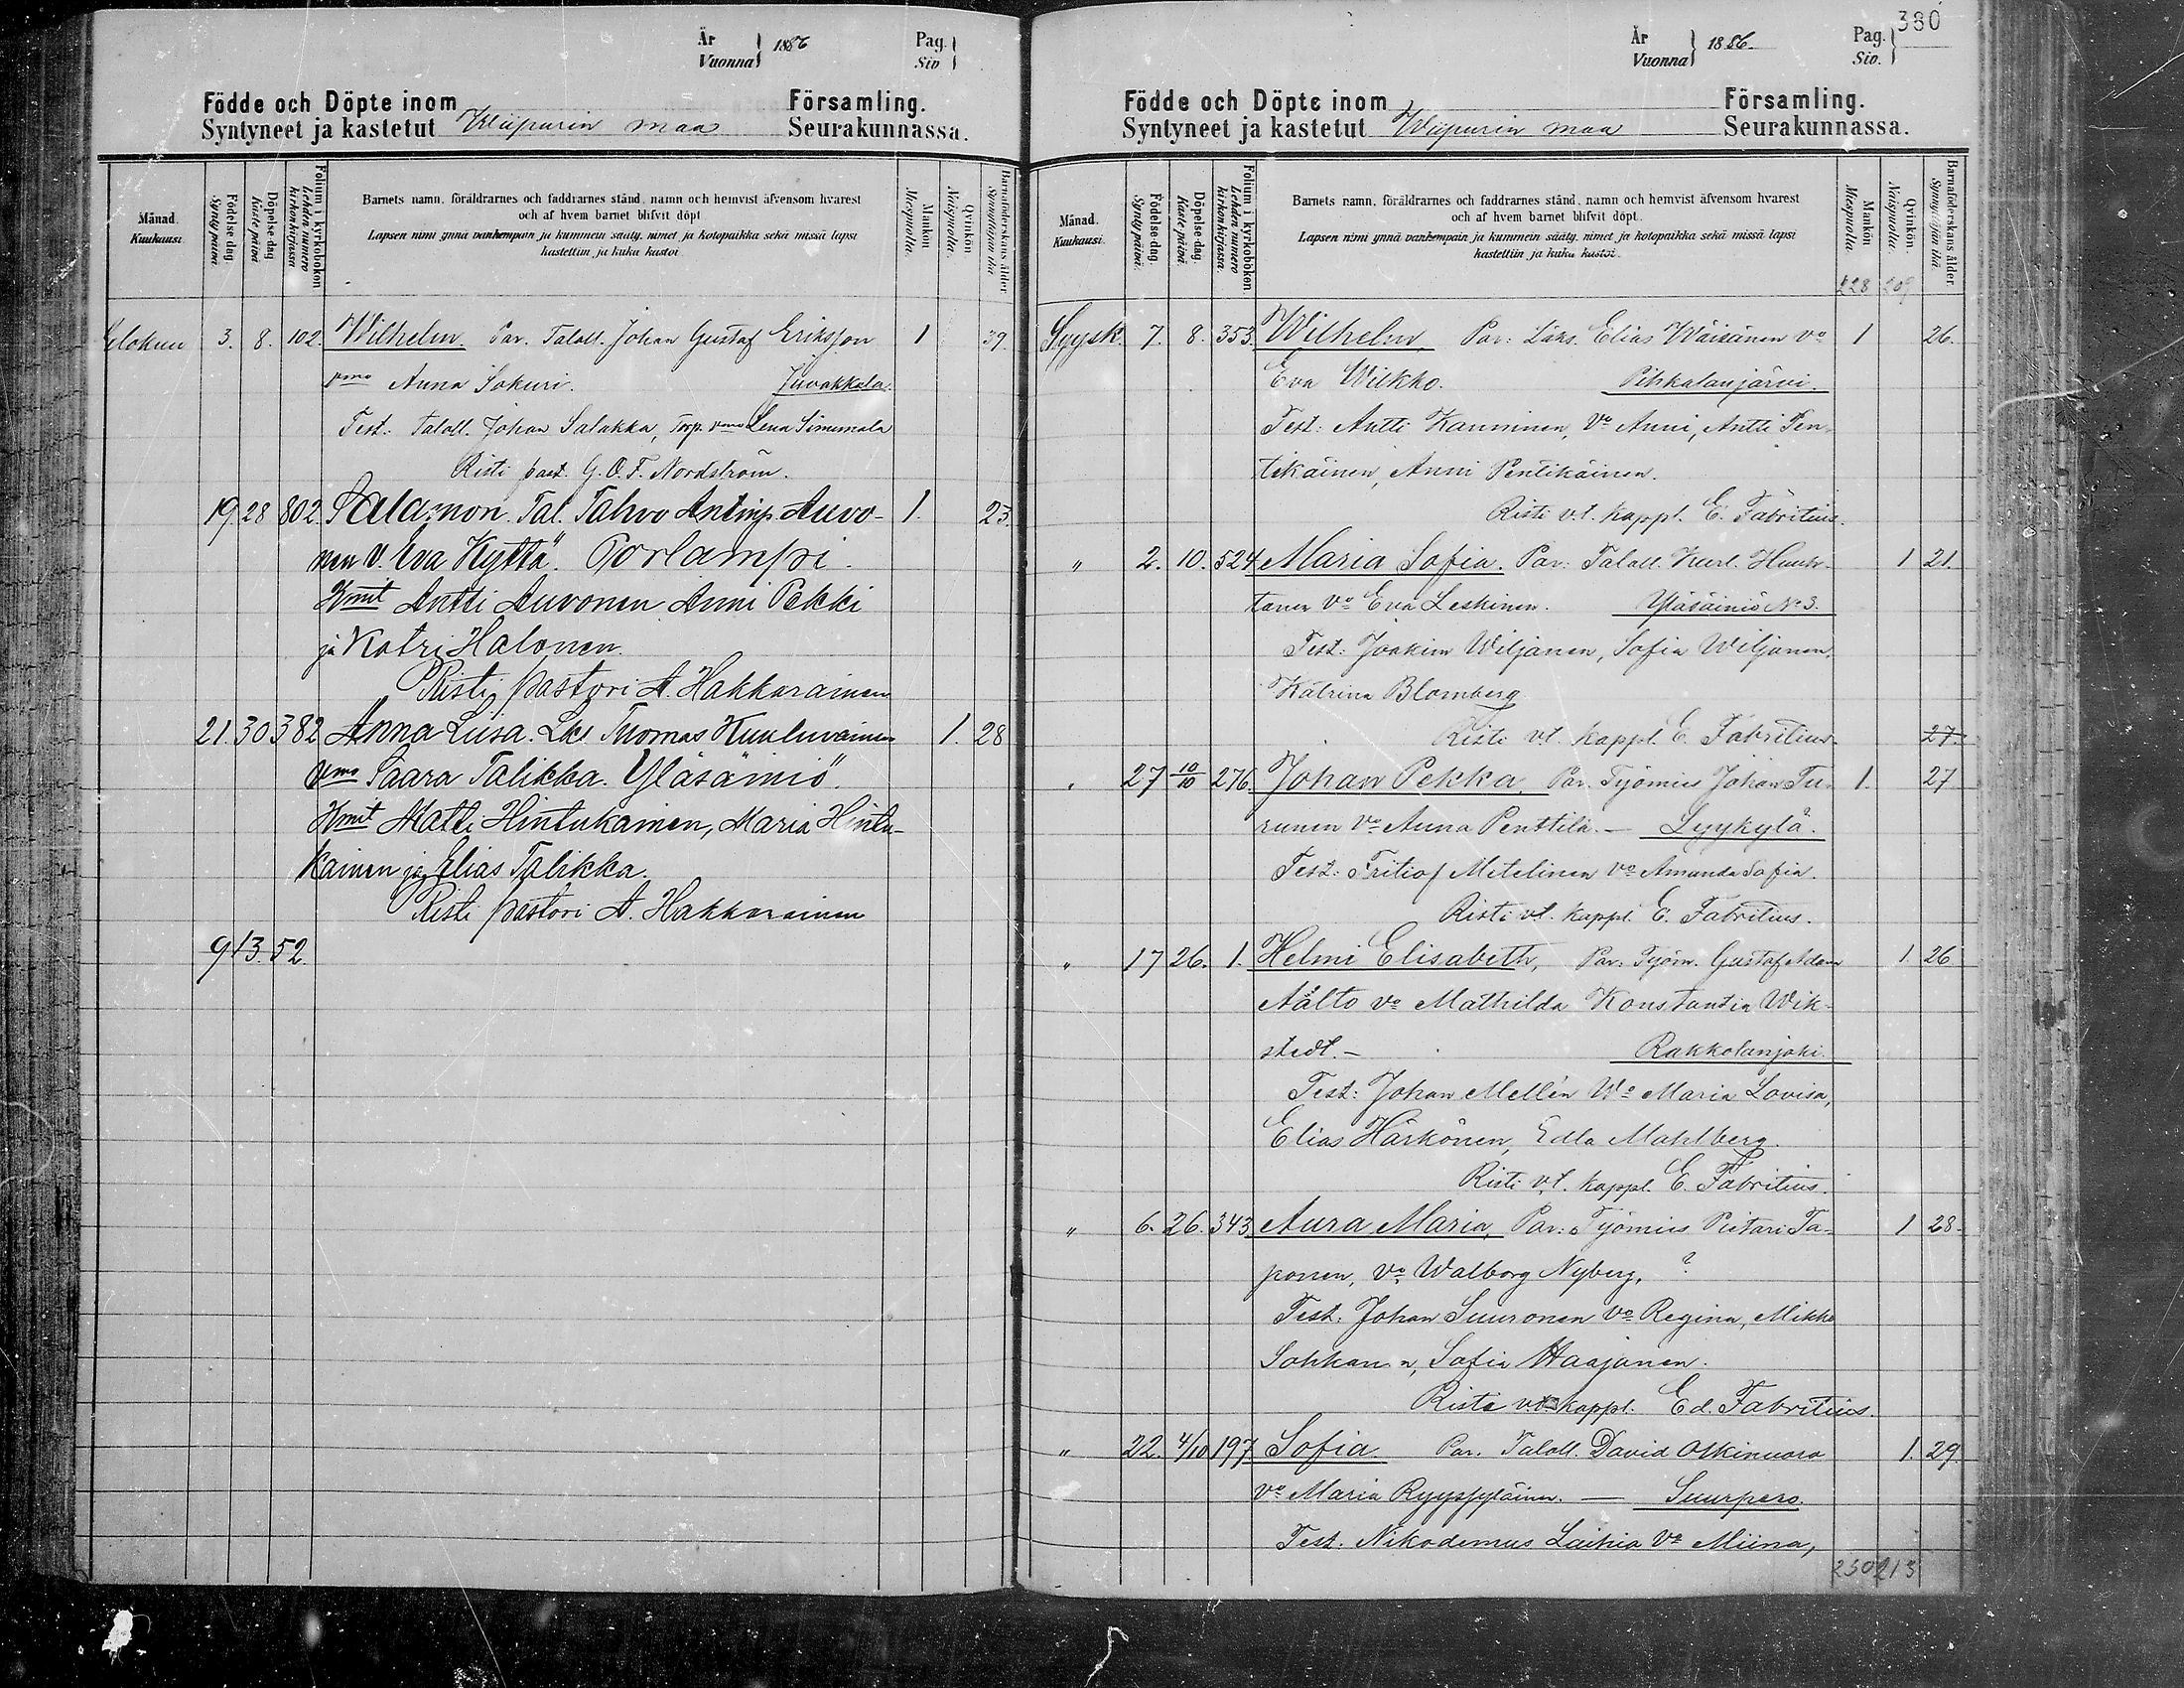 År
Vuonna } 1886
Pag.
Siv }
Födde och Döpte inom Församling.
Syntyneet ja kastetut Wiipurin maa Seurakunnassa.
Månad.
Kuukausi.
Födelse dag.
Synty päivä.
Döpelse dag
Kaste päivä
Folium i kyrkoboken
Lehden numero
kirkonkirjassa
Barnets namn, föräldrarnes och faddrarnes stånd, namn och hemvist äfvensom hvarest
och af hvem barnet blifvit döpt
Lapsen nimi ynnä vanhempain ja kummein sääty, nimet ja kotopaikka sekä missä lapsi
kastettiin ja kuka kastoi
Mankön
Miespuolta.
Qvinkön
Naispuolta.
Barnaföderskans ålder
Synnyttäjän ikä
Elokuu 3. 8. 102. Wilhelm. Par. Taloll. Johan Gustaf Eriksson 1 39.
vmo Anna Sokuri. Juvakkala.
Test. Taloll. Johan Salakka, Torp. vmo Lena Simumala
Risti past. G. O. F. Nordström.
19 28 802. Salamon. Tal. Tahvo Antinp. Auvo- 1. 23.
nen v. Eva Kyttä. Porlampi.
Kmit Antti Auvonen Anni Pekki
ja Katri Halonen.
Risti pastori A. Hakkarainen
21. 30 382 Anna Liisa. Lks Thomas Kuuluvainen 1. 28
vmo Saara Talikka. Yläsäiniö.
Kmit Matti Hintukainen, Maria Hintu-
kainen ja Elias Talikka.
Risti pastori A. Hakkarainen
913. 52.
380
År
Vuonna } 1886.
Pag.
Siv. }
Födde och Döpte inom Församling.
Syntyneet ja kastetut Wiipurin maa Seurakunnassa.
Månad.
Kuukausi.
Födelse dag.
Synty päivä.
Döpelse dag.
Kaste päivä.
Folium i kyrkoboken.
Lehden numero
kirkonkirjassa.
Barnets namn, föräldrarnes och faddrarnes stånd, namn och hemvist äfvensom hvarest
och af hvem barnet blifvit döpt.
Lapsen nimi ynnä vanhempain ja kummein sääty, nimet ja kotopaikka sekä missä lapsi
kastettiin ja kuka kastoi.
Mankön
Miespuolta.
Qvinkön.
Naispuolta.
Barnaföderskans ålder
Synnyttäjän ikä.
228 209
Syysk. 7. 8. 353. Wilhelm Par: Läks. Elias Wäisänen vo 1 26.
Eva Wilkko. Pihkalanjärvi
Test: Antti Kauninen, Vo Anni, Antti Pen-
tikäinen, Anni Pentikäinen.
Risti v.t. kappl. E. Fabritius.
" 2. 10. 524 Maria Sofia. Par: Taloll. Kurl. Huuh- 1 21.
tanen Vo Eva Leskinen. Yläsäiniö No 3.
Test: Joakim Wiljanen, Sofia Wiljanen,
Katrina Blomberg
Risti vt. kappl. E. Fabritius. 27.
" 27 10/10 276. Johan Pekka, Par. Työmies Johan Tu- 1. 27
runen Vo Anna Penttilä. — Lyykylä.
Test: Fritiof Metelinen Vo Amanda Sofia.
Risti vt. kappl. E. Fabritius.
" 17 26. 1. Helmi Elisabeth, Par: Työm. Gustaf Adam 1. 26
Aalto vo Mathilda Konstantia Wik-
stedt. — Rakkolanjoki.
Test: Johan Mellén Wo Maria Lovisa,
Elias Härkönen, Edla Mahlberg.
Risti v.t. kappl. E. Fabritius.
" 6. 26. 343 Aura Maria, Par: Työmies Pietari Ta- 1 28.
ponen, Vo Walborg Nyberg, ?
Test. Johan Suuronen Vo Regina, Mikko
Sohkan n, Sofia Haajanen.
Risti v.t. kappl. Ed. Fabritius.
" 22. 4/10 197 Sofia. Par. Taloll. David Oskinuora 1. 29
Vo Maria Ryyspyläinen. — Suurpero.
Test. Nikodemus Laihia Vo Miina,
230 213